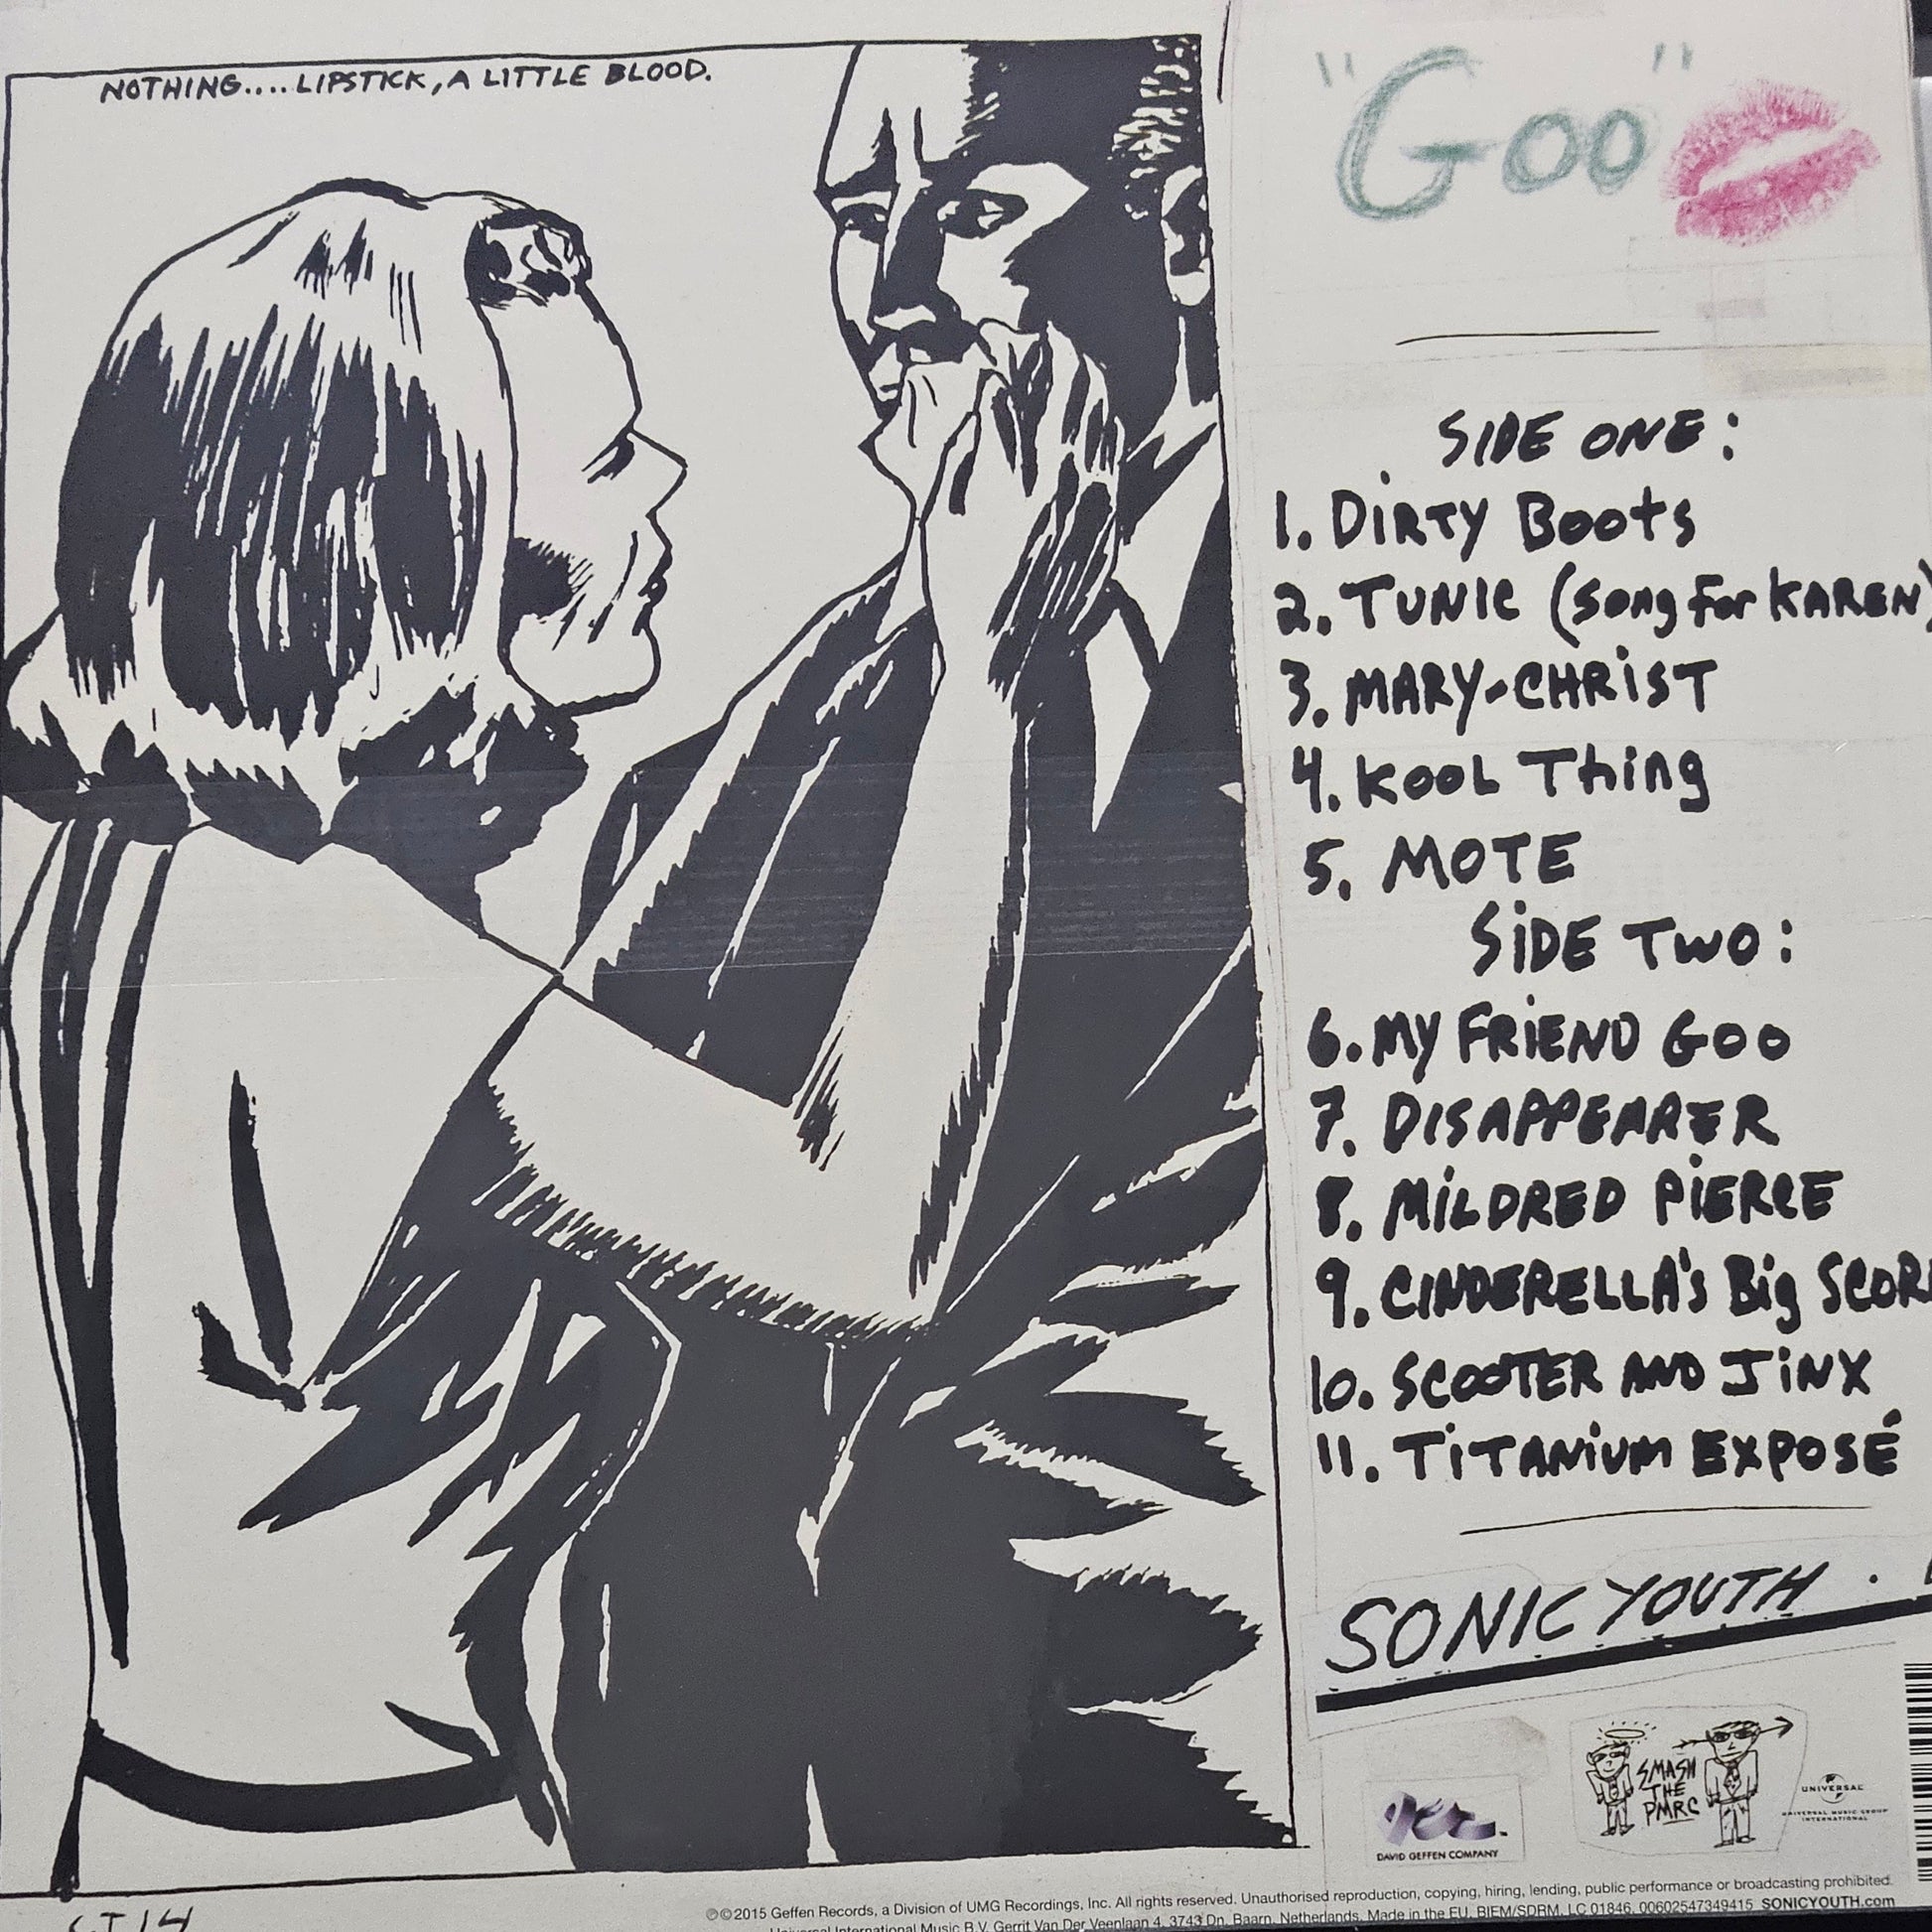 NOTHING.... LIPSTICK, A LITTLE BLOOD.
"Goo"
SIDE ONE:
1. DiRTY Boots
2. TUNIC (Song For KAREN)
3. MARY-CHRiST
4. KOOL Thing
5. MOTE
SiDE TWO:
6. MY FRiEND GOO
7. DISAPPEARER
8. MiLDRED PiERCE
9. CINDERELLA'S Big SCOR
10. SCOOTER AND JiNX
11. TiTANiUM EXPOSÉ
SONIC YOUTH
SMASH
THE
PMRC
DAVID GEFFEN COMPANY
UNIVERSAL
UNIVERSAL MUSIC GROUP
INTERNATIONAL
℗©2015 Geffen Records, a Division of UMG Recordings, Inc. All rights reserved. Unauthorised reproduction, copying, hiring, lending, public performance or broadcasting prohibited.
Universal International Music B.V. Gerrit Van Der Veenlaan 4, 3743 Dn, Baarn, Netherlands. Made in the EU. BIEM/SDRM. LC 01846. 00602547349415 SONICYOUTH.com